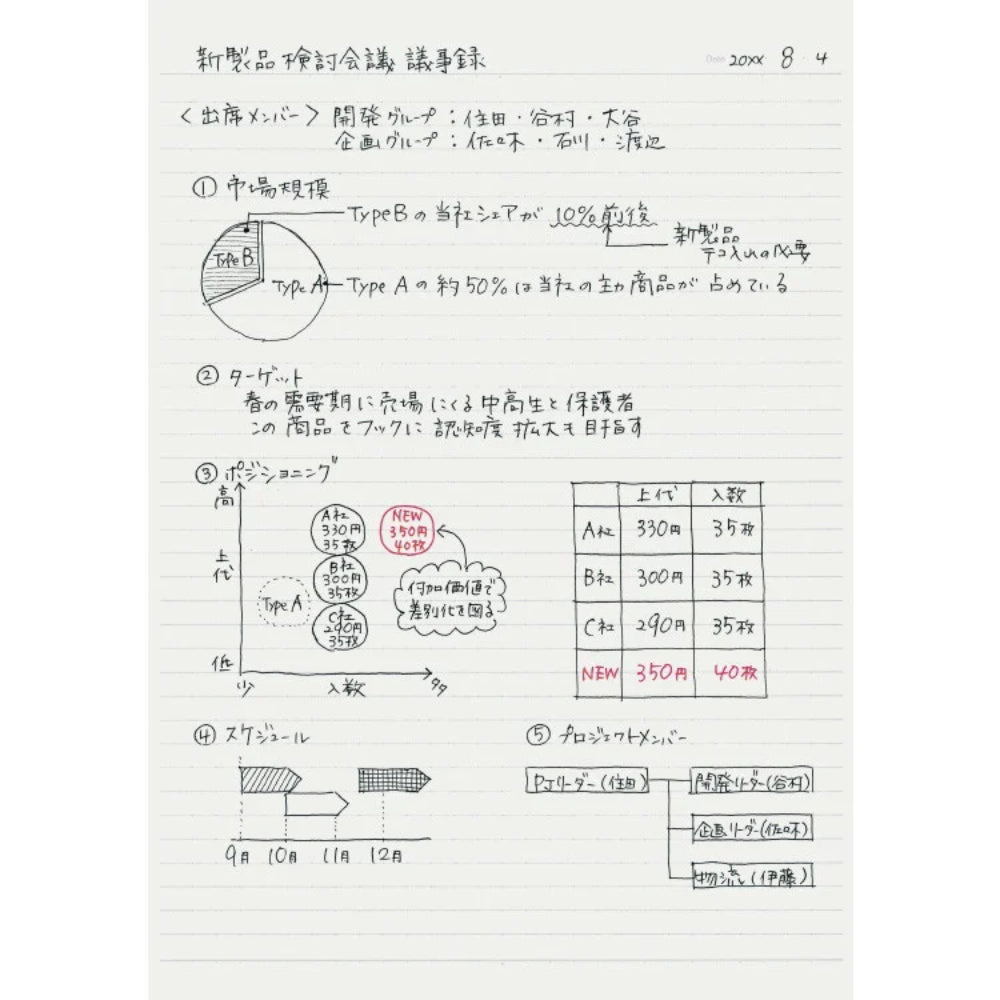 新製品検討会議 議事録
Date 20XX 8・4
〈出席メンバー〉 開発グループ：住田・谷村・大谷
企画グループ：佐々木・石川・渡辺
① 市場規模
TypeBの当社シェアが10%前後
新製品
テコ入れの必要
TypeB
TypeA
TypeAの約50%は当社の主力商品が占めている
② ターゲット
春の需要期に売場にくる中高生と保護者
この商品をフックに認知度拡大も目指す
③ ポジショニング
高
上代
低
少
入数
多
A社
330円
35枚
NEW
350円
40枚
B社
300円
35枚
TypeA
C社
290円
35枚
付加価値で
差別化を図る
上代 入数
A社 330円 35枚
B社 300円 35枚
C社 290円 35枚
NEW 350円 40枚
④ スケジュール
9月 10月 11月 12月
⑤ プロジェクトメンバー
PJリーダー(住田)
開発リーダー(谷村)
企画リーダー(佐々木)
物流(伊藤)